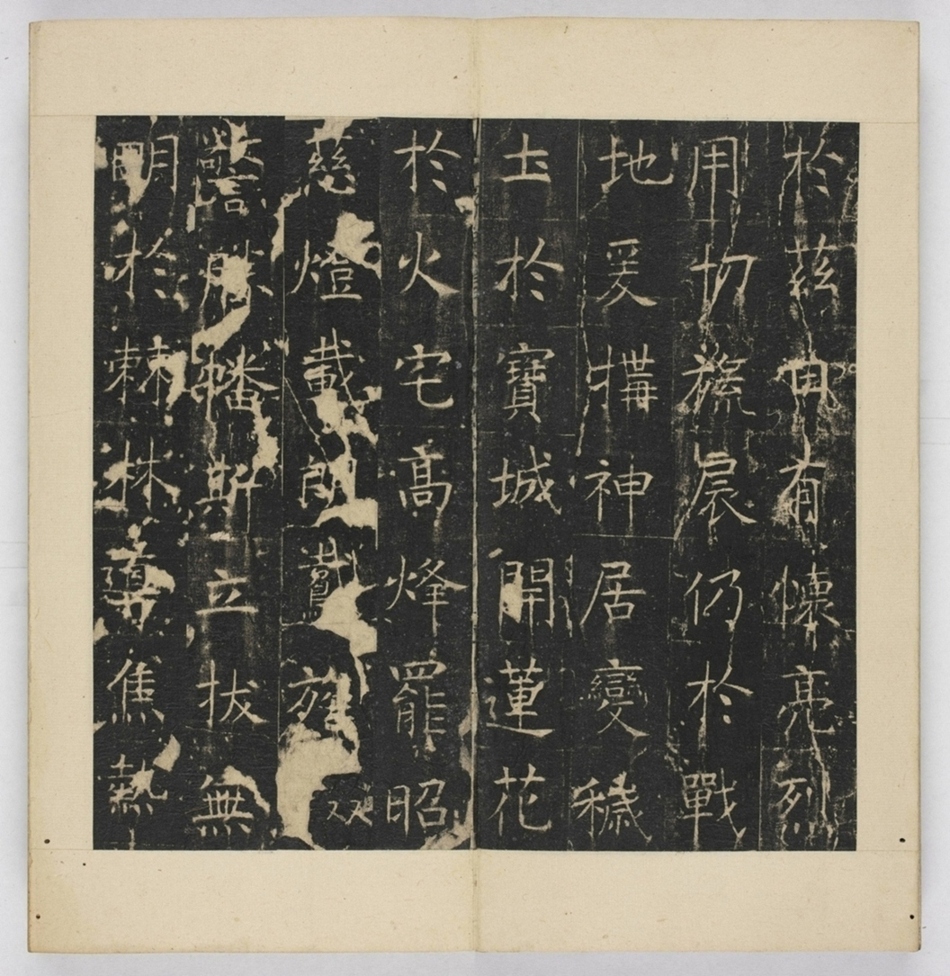 於茲有懷亮烈
用切旒扆仍於戰
地爰構神居變穢
土於寶城開蓮花
於火宅高烽罷昭
慈燈載朗旌収
警勝幡斯立拔無
明於棘林導焦熱